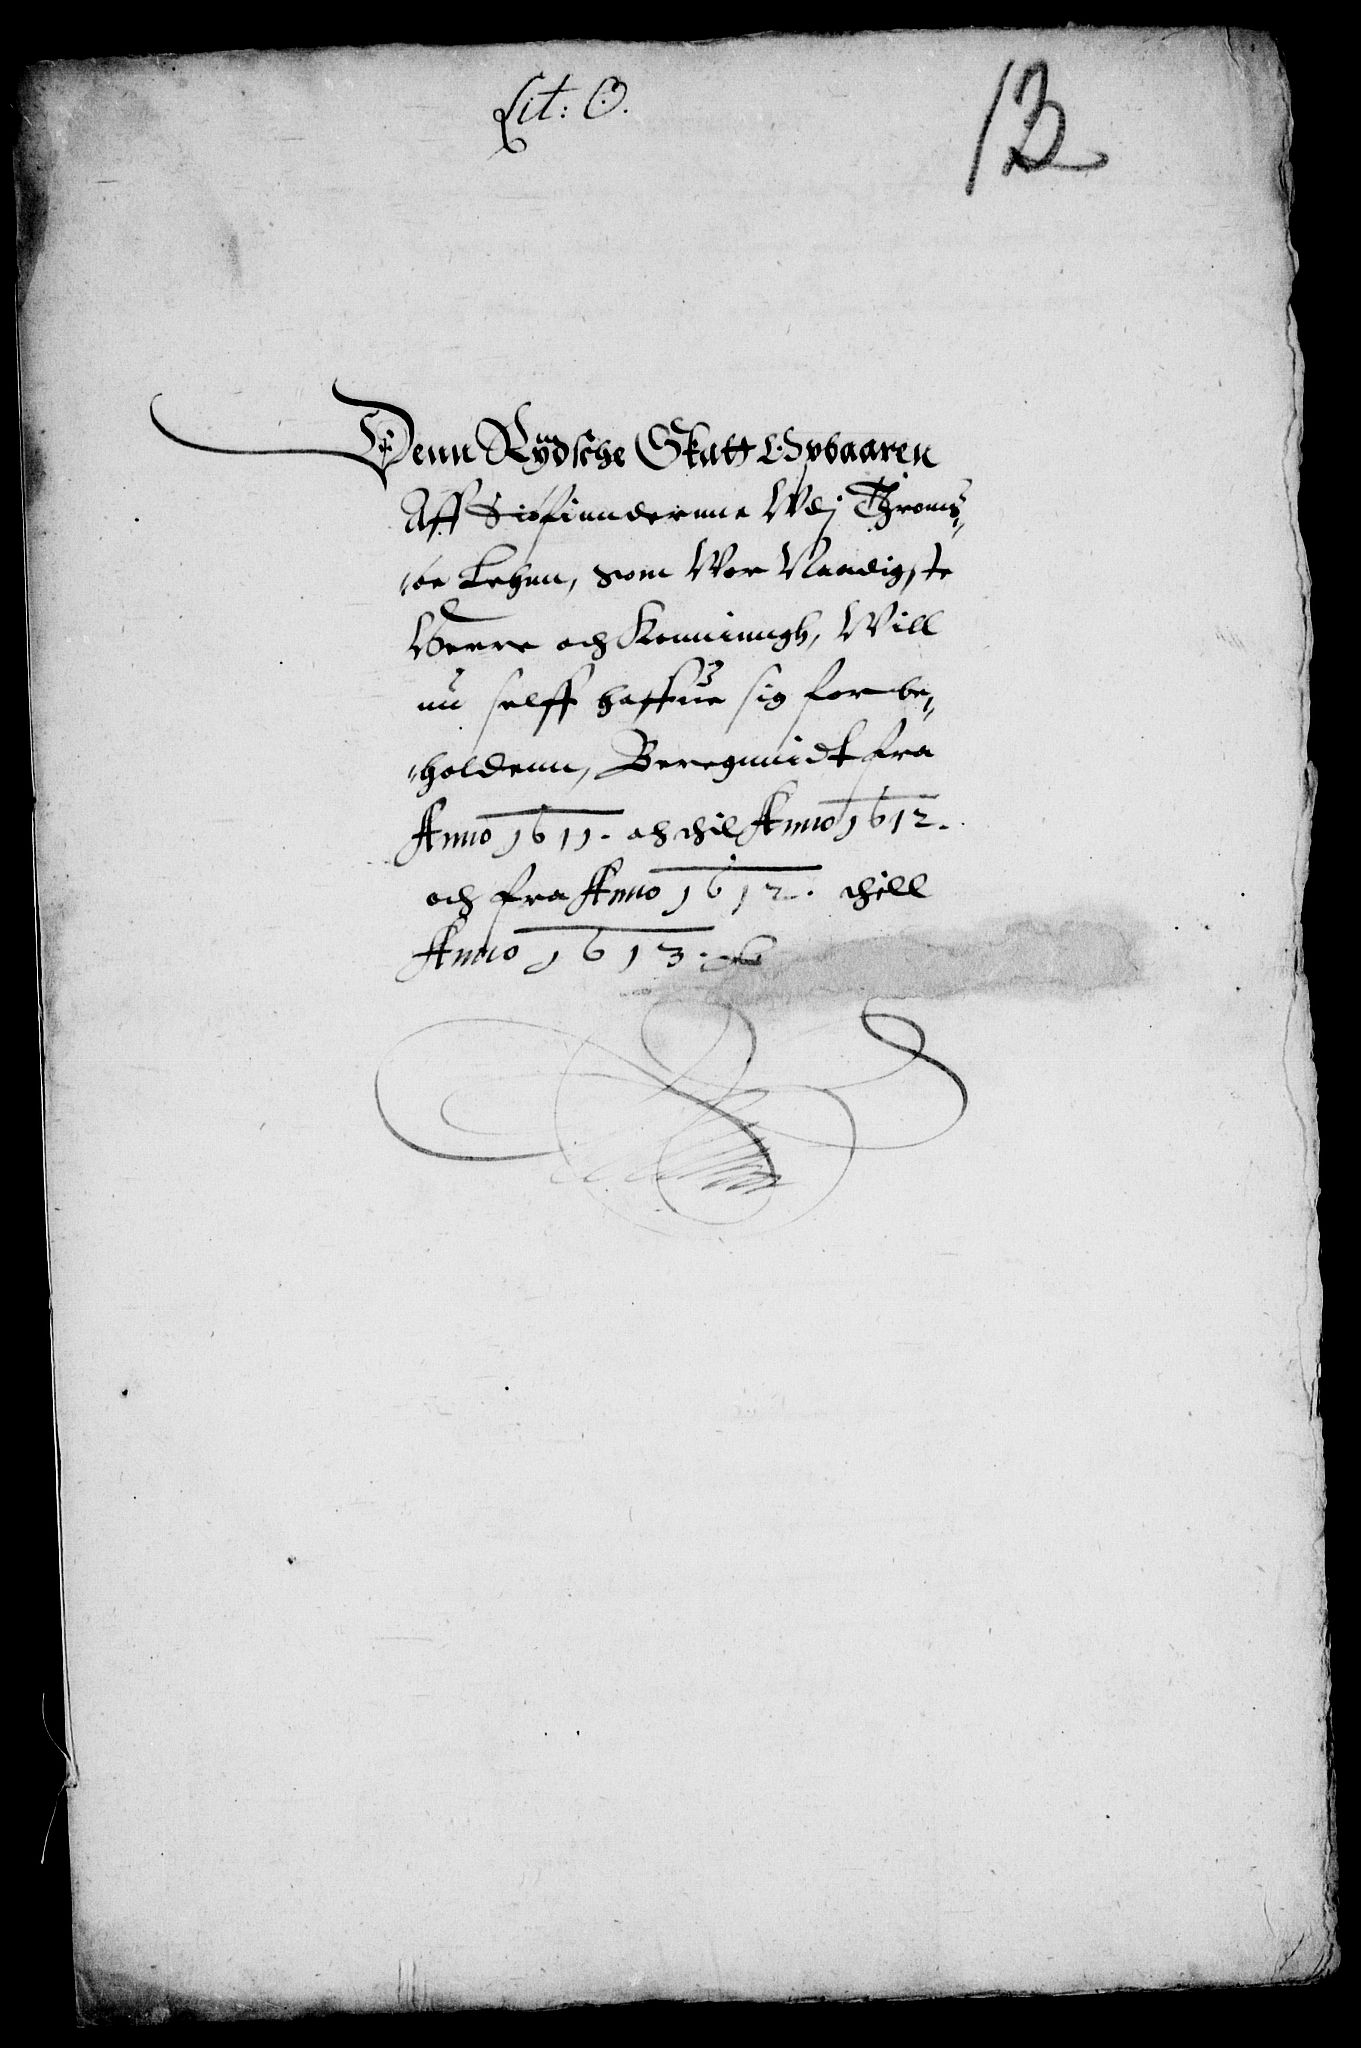 Lit: O.
13
Denn Rydsche Skatt Opbaaren
Aff Siøfinndernne Wdj Throms,,
,,øe Lehnn, som Wor Naadigste
Herre och Konningh, Will
nu selff haffue sig forbe,,
,,holdenn, Beregnnidt fra
Anno 1611. och thil Anno 1612.
och fra Anno 1612. thill
Anno 1613.